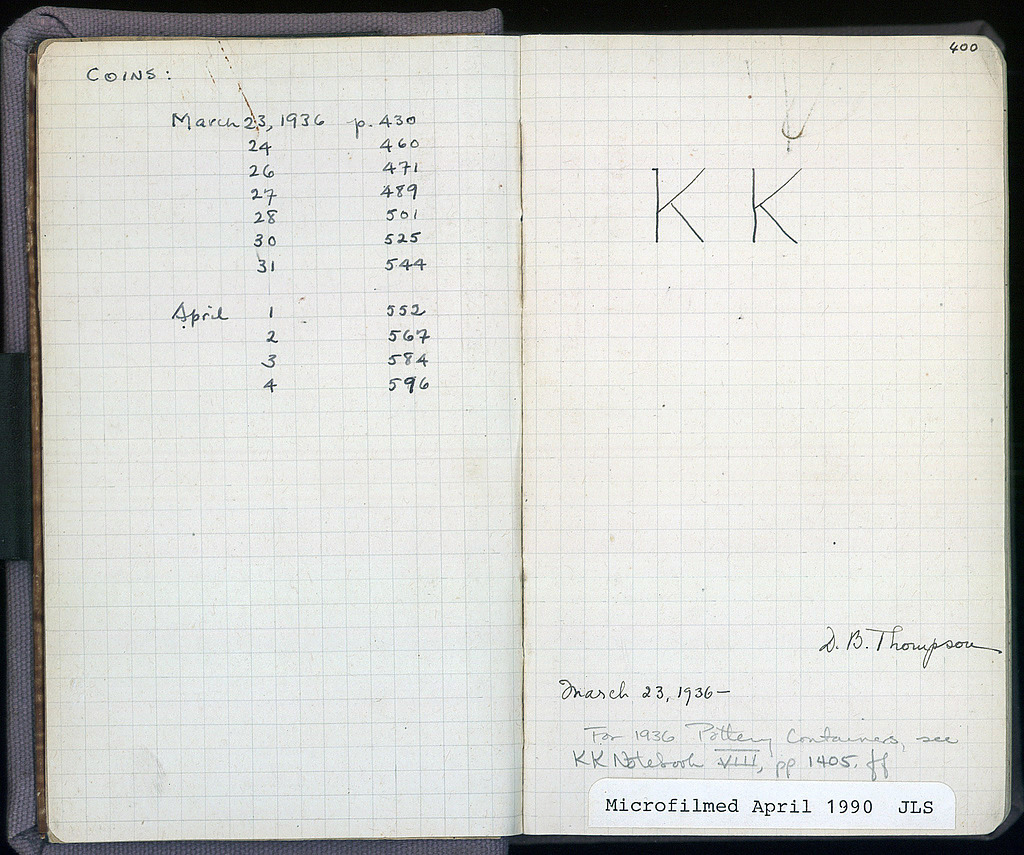 COINS:
March 23, 1936 p. 430
24 460
26 471
27 489
28 501
30 525
31 544
April 1 552
2 567
3 584
4 596
400
K K
D. B. Thompson
March 23, 1936—
For 1936 Pottery Containers, see
KK Notebook VIII, pp 1405. ff
Microfilmed April 1990 JLS